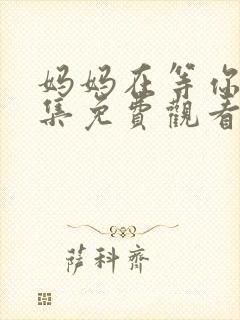 妈妈在等你
集免費觀看
萨科齊